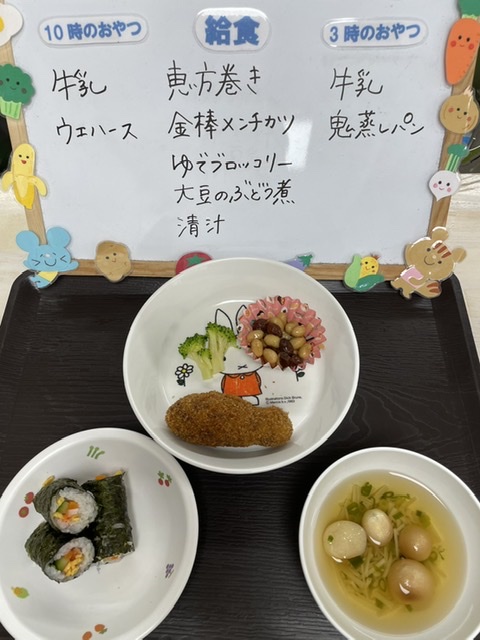 10時のおやつ
給食
3時のおやつ
牛乳
ウエハース
恵方巻き
金棒メンチカツ
ゆでブロッコリー
大豆のぶどう煮
清汁
牛乳
鬼蒸しパン